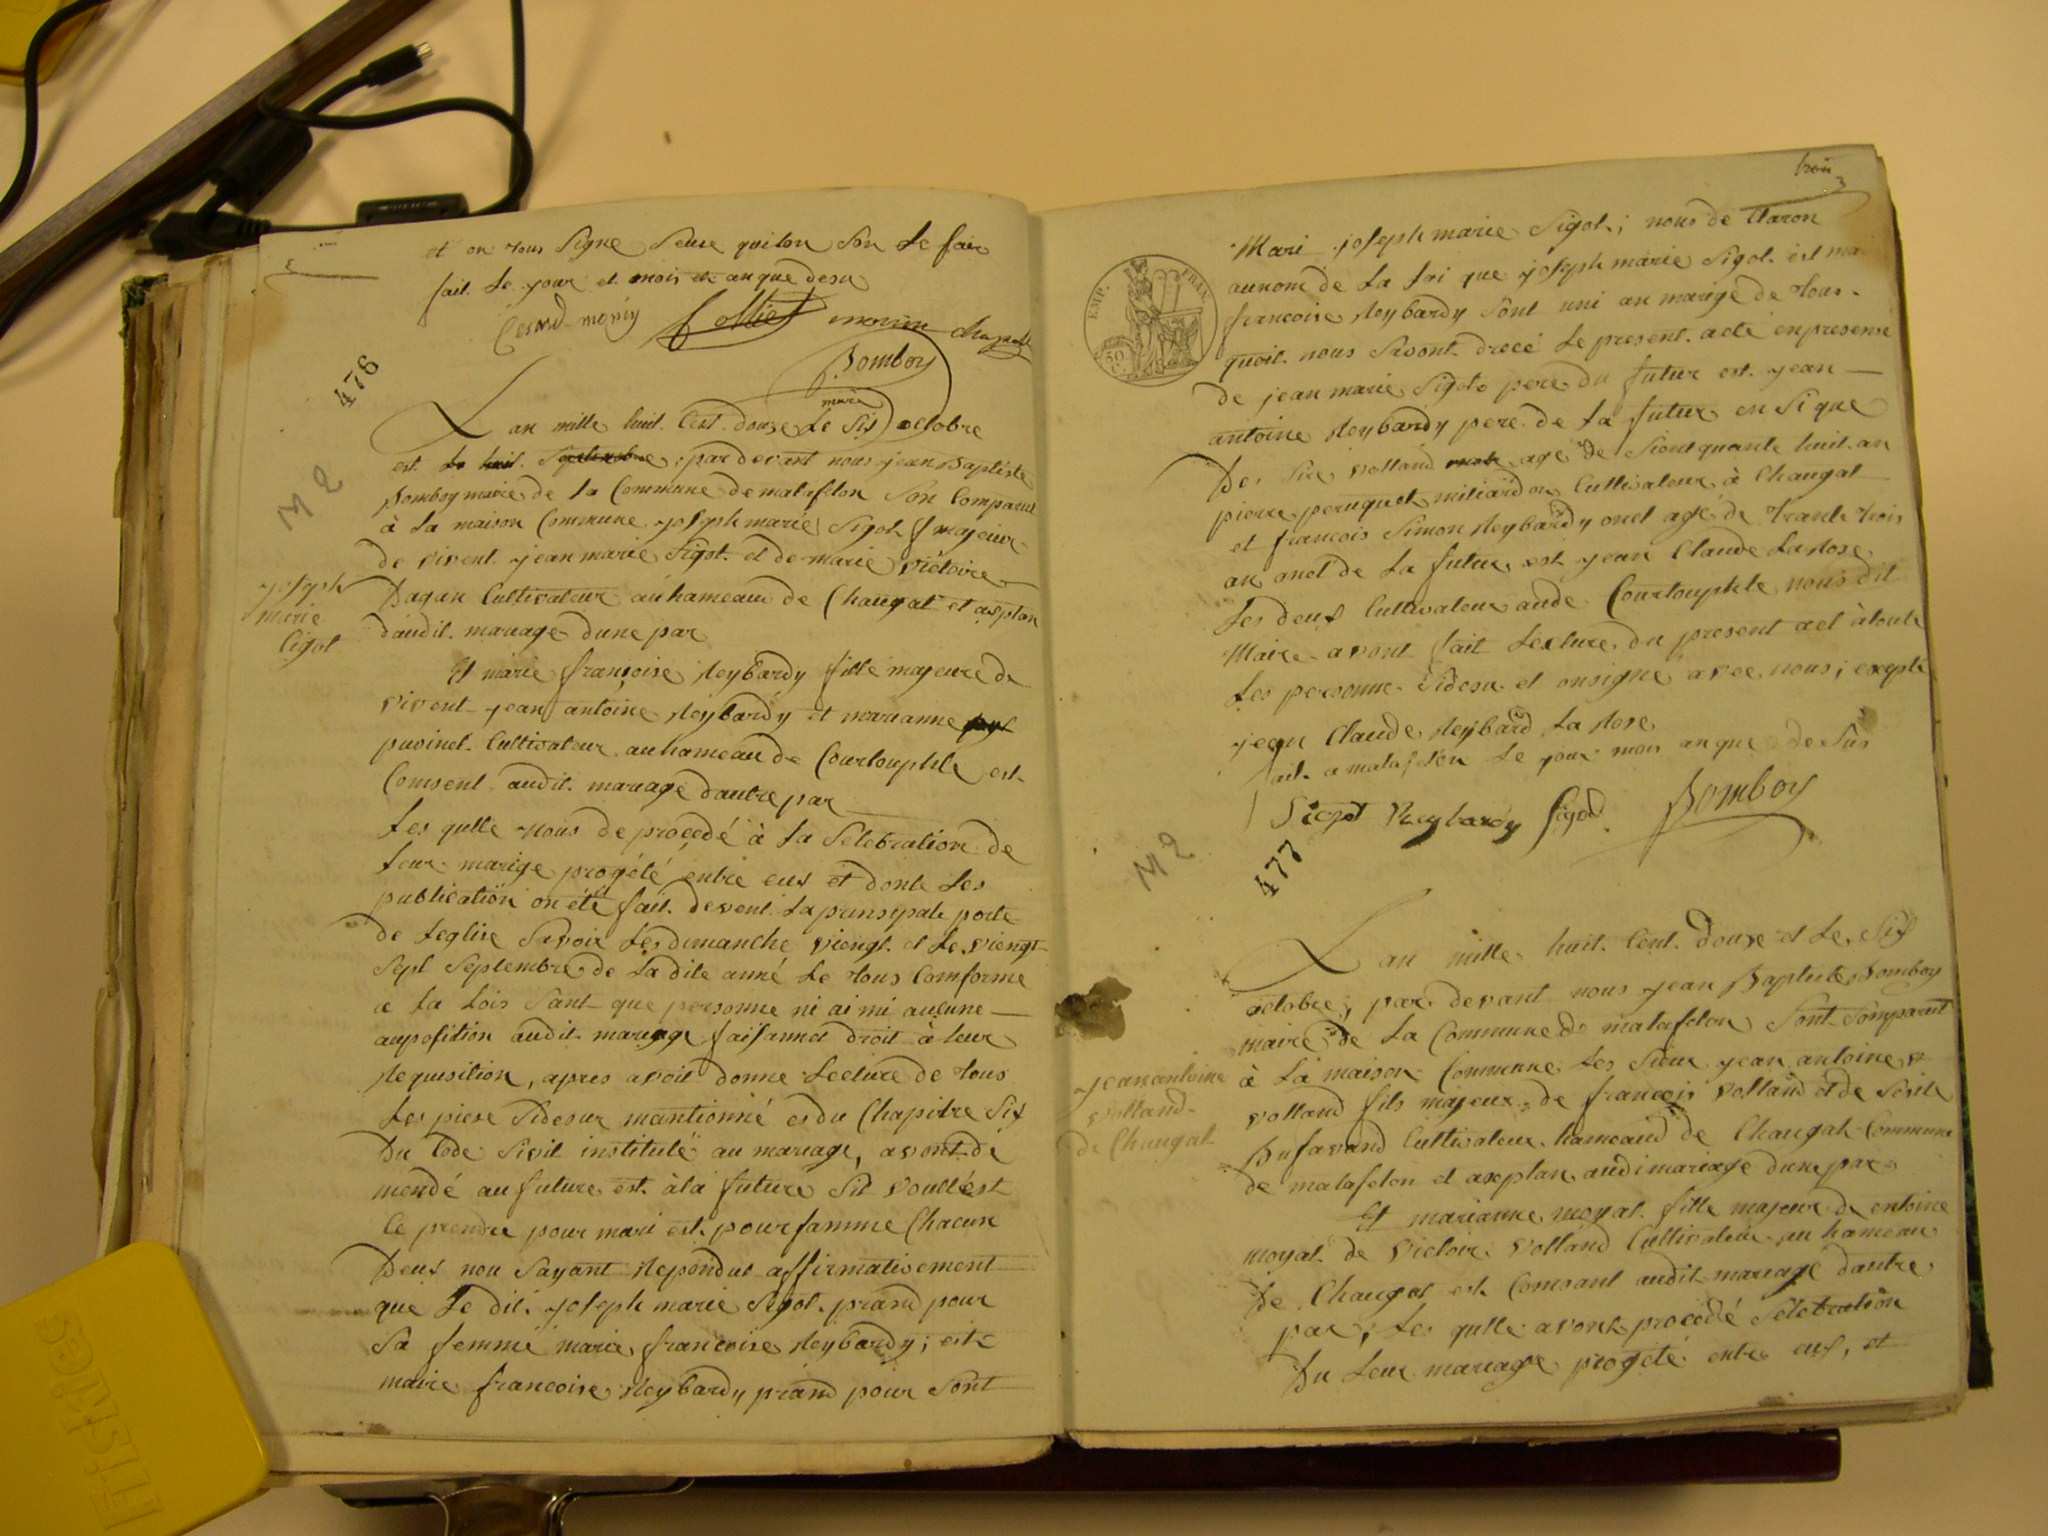 et on tous signe seux quilon son le fair
fait le jour et mois et an que desu
Bomboy
476
M 2
joseph
marie
Sigot
maire
Lan mille huit Cest douze le Six octobre
est le huit Septembre, pardevant nous jean Baptiste
Bomboy maire de la Commune de matafelon Son Comparue
à la maison Commune joseph marie Sigot f majeur
de vivent jean marie Sigot et de marie victoire
Dagan Cultivateur au hameaux de Changat et axplan
daudit mariage dune par
Et marie françoise Reybardy fille majeure de
vivent jean antoine Reybardy et marianne
puvinel Cultivateur au hameau de Courtouphle est
Comsent audit mariage dautre par
les qulle nous de procedé à la Selebration de
leur marige progété entre eux et donte les
publication on été fait devent la prinsipale porte
de leglise Savoir les dimanche viengt et le viengt
Sept Septembre de ladite anné le tous Comforme
a la Lois Sant que personne ni ai mi aucune
auposition audit mariage faisannet droit à leur
Requisition, apres avoir donne Lecture de tous
les piese Sidesur mantionné es du Chapitre Six
Du Code Sivil institulé au mariage, avont dé
mendé au future est à la future Sil voullést
ce prendre pour mari est pour famme Chacun
Deux nou Sayant Repondue affirmativement
que le dit joseph marie Sigot prand pour
Sa femme marie françoise Reybardy; est
marie francoise Reybardy prand pour Sont
trois
EMP. FRAN.
50
C.
Mari joseph marie Sigot; nous de Claron
aunom de la Loi que joseph marie Sigot est ma
francoise Reybardy Sont uni an marige de tous
quoit nous Savont drecé le present acte enpresense
de jean marie Sigot pere du futur est jean
antoine Reybardy pere de la futur en Si que
Des Sier volland age de Sientquante huit an
pierre peruquet miliardon Cultivateur à Changat
et francois Simon Reybardy onct agé de trante trois
an onct de la futur est jean Claude La Rose
les deux Cultivateur aude Courtouphle nous dit
Maire avont fait Lecture du present act à toute
les personne Sidesu et onsigné avec nous; exepté
jean Claude Reybard La Rose
fait a matafelon le jour mois an que de Sus
Sigot Reybardy Sigod Bomboy
M 2
477
jean antoine
volland
de Changat
Lan mille huit Cent douze et le Six
octobre, par devant nous jean Baptiste Bomboy
maire de La Commune de matafelon Sont Comparut
à La maison Commune Les Sieur jean antoine v
volland fils majeur de francois volland et de
Dufavand Cultivateur hameaud de Changat Commune
de matafelon et axplan audimariage dune par
Et marianne moyat fille majeur de entoine
moyat de victoir volland Cultivateur au hameau
de Changat est Comsant audit mariage dautre
par; les qulle avont procédé Selebration
Du Leur mariage progeté entre eux, et
FISKARS